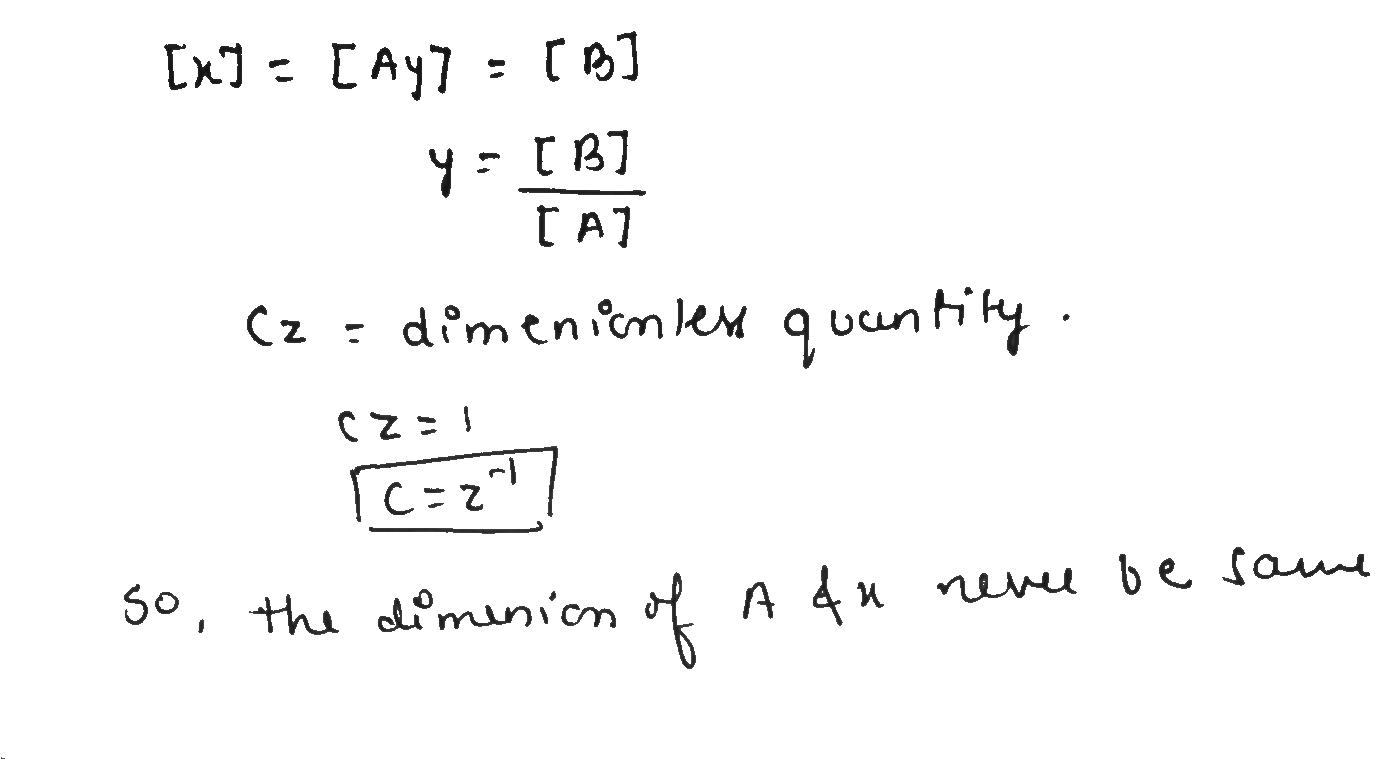 [x] = [Ay] = [B]
y = [B]
[A]
Cz = dimenionless quantity.
Cz = 1
C = z⁻¹
So, the dimenion of A & x never be same